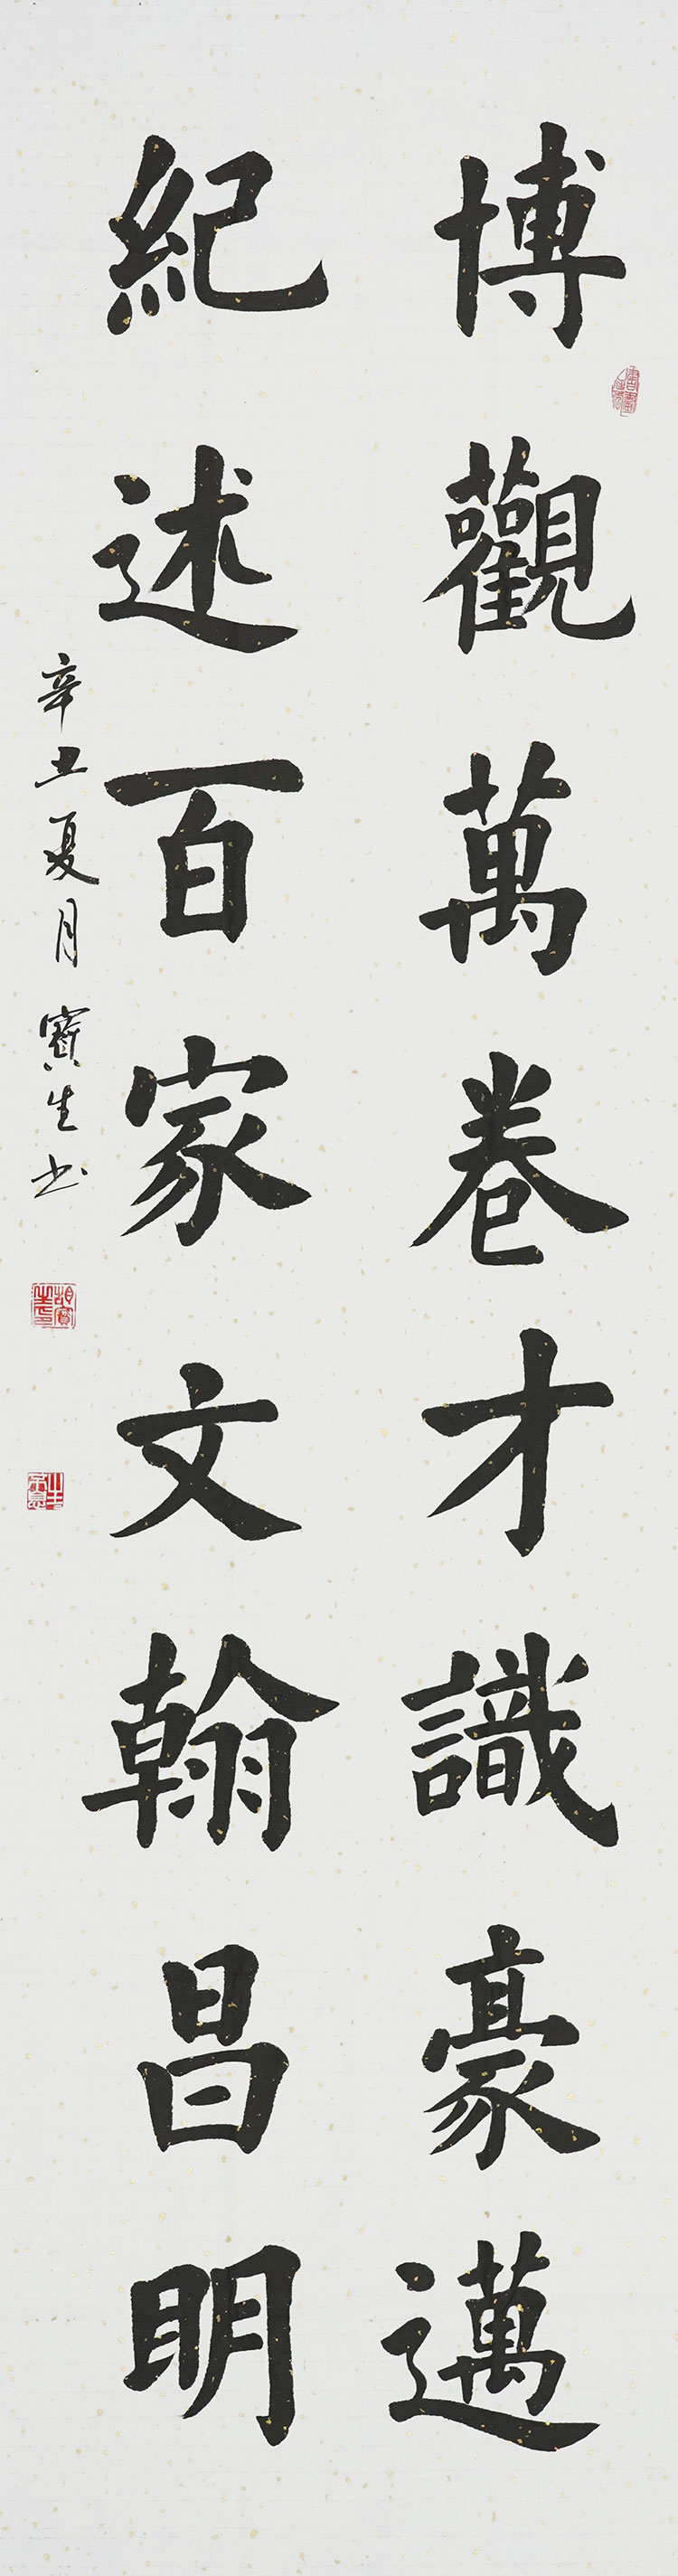 博觀萬卷才識豪邁
紀述百家文翰昌明
辛丑夏月寶生书
胡寶生印